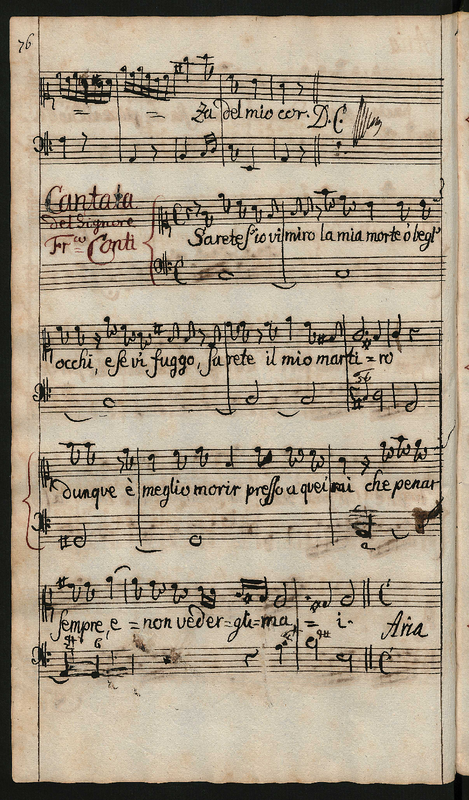 76
za del mio cor. D. C.
Cantata
del Signore
Fr.co Conti
Sarete s'io vi miro la mia morte ò begl'
occhi, e se vi fuggo, sarete il mio marti = ro
56
dunque è meglio morir presso a quei rai che penar
sempre, e = non veder = gli = ma, = i.
Aria
6